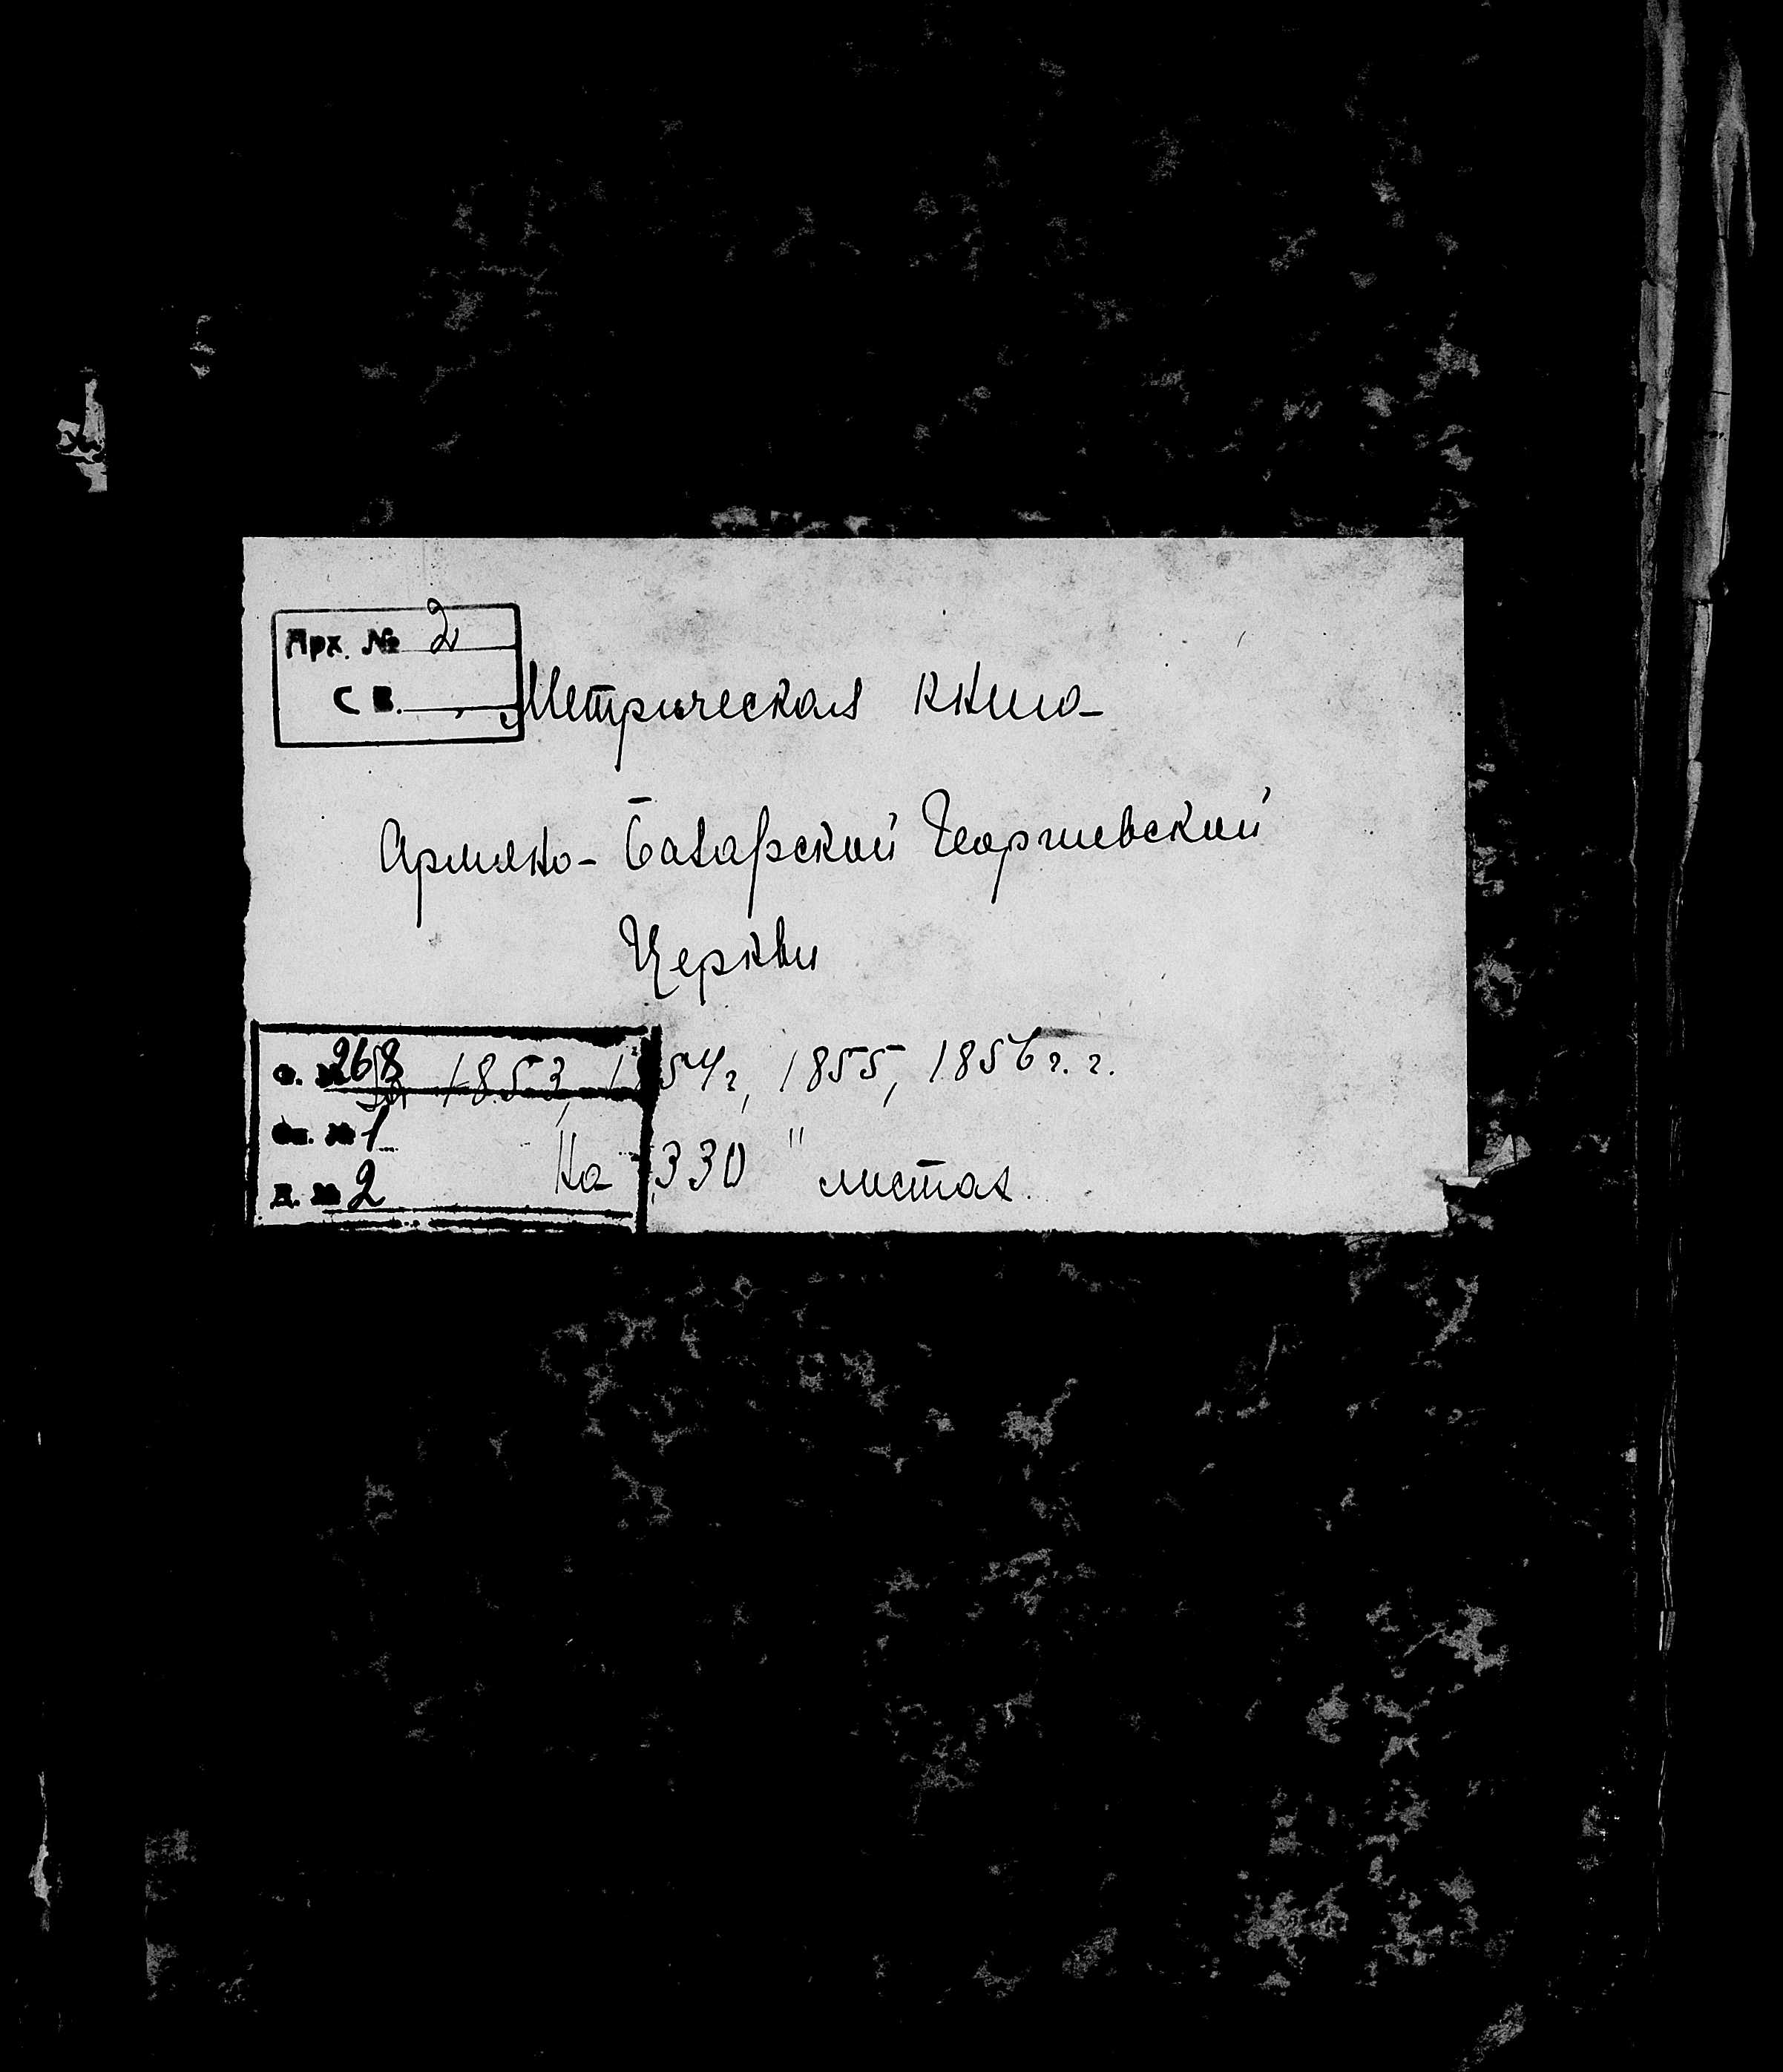 Арх. № 2
С В.
Метрическая книга
Армяно-Базарской Георгиевской
Церкви
За 1853, 1854г, 1855, 1856 г.г.
На "330" листах.
Ф. № 268
Оп. № 1
Д. № 2